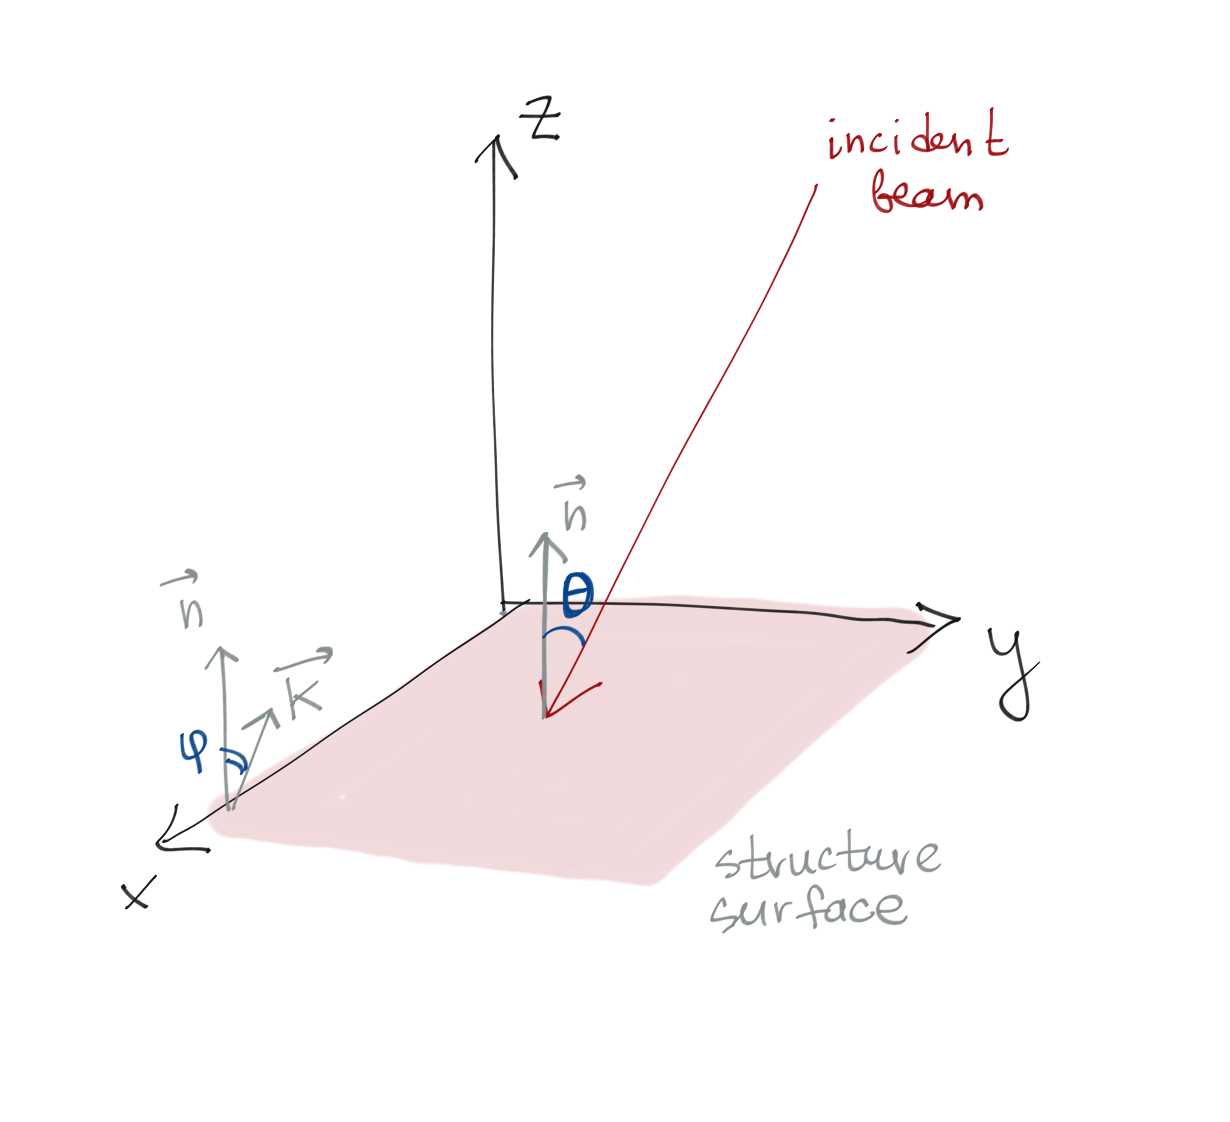 z
incident
beam
n
θ
n
k
φ
y
x
structure
surface